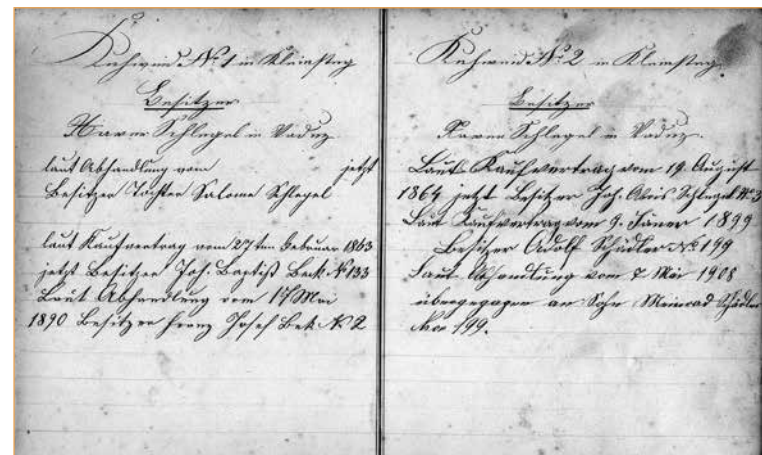 Kuhweid № 1 in Kleinsteg
Besitzer
Xaver Schlegel in Vaduz
laut Abhandlung vom jetzt
Besitzer Tochter Salome Schlegel
laut Kaufvertrag vom 27ten Februar 1863
jetzt Besitzer Joh. Baptist Beck № 133
Laut Abhandlung vom 17 Mai
1890 Besitzer Franz Josef Bek № 2
Kuhweid № 2 in Kleinsteg
Besitzer
Xaver Schlegel in Vaduz.
Laut Kaufvertrag vom 19. August
1864 jetzt Besitzer Joh. Alois Schlegel № 3
Laut Kaufvertrag vom 9. Jäner 1899
Besitzer Adolf Schädler № 199
Laut Abhandlung vom 7 Mai 1908
übergegagen an Sohn Meinrad Schädler
Nro 199.